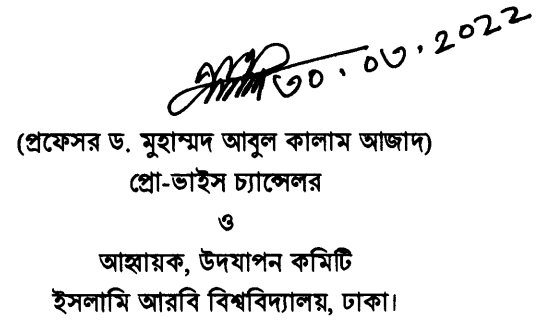 ৩০.০৩.২০২২
(প্রফেসর ড. মুহাম্মদ আবুল কালাম আজাদ)
প্রো-ভাইস চ্যান্সেলর
ও
আহ্বায়ক, উদযাপন কমিটি
ইসলামি আরবি বিশ্ববিদ্যালয়, ঢাকা।